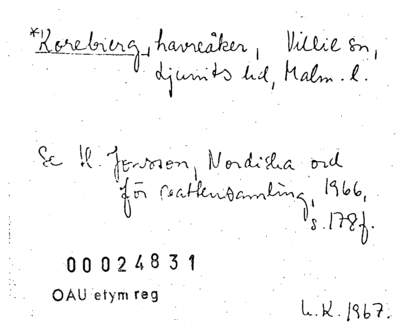 *Korebierg, havreåker, Villie sn,
Ljunits hd, Malm. l.
Se H. Jonsson, Nordiska ord
för vattensamling, 1966,
s. 178f.
00024831
OAU etym reg
L.K. 1967.